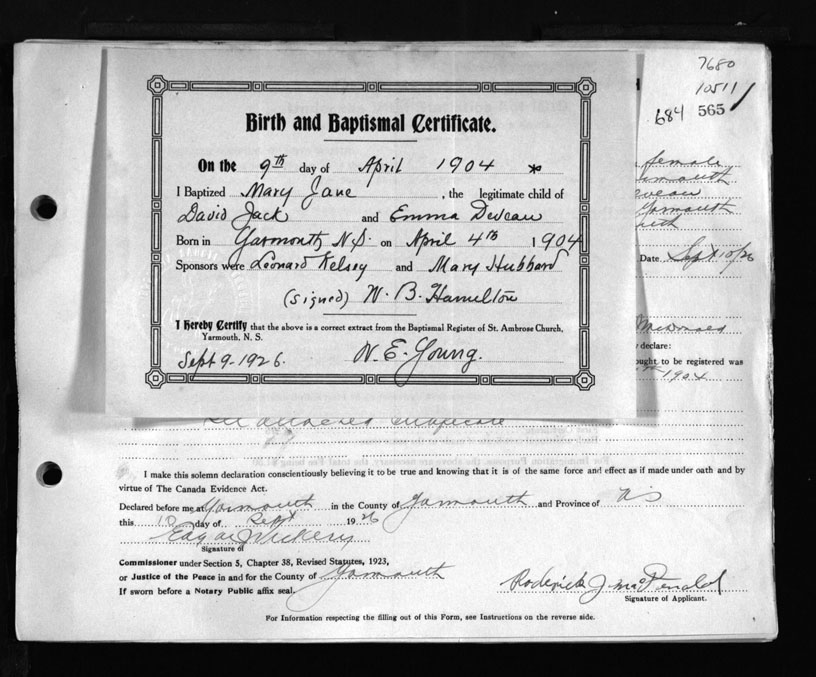 7680
10511
684 565
Birth and Baptismal Certificate.
On the 9th day of April 1904 *
I Baptized Mary Jane, the legitimate child of
David Jack and Emma Deveau
Born in Yarmouth N.S. on April 4th 1904
Sponsors were Leonard Kelsey and Mary Hubbard
(signed) W. B. Hamilton
I Hereby Certify that the above is a correct extract from the Baptismal Register of St. Ambrose Church,
Yarmouth, N. S.
Sept 9-1926. N. E. Young.
female
Date Sept 10/26
MacDonald
declare:
ought to be registered was
1904
I make this solemn declaration conscientiously believing it to be true and knowing that it is of the same force and effect as if made under oath and by
virtue of The Canada Evidence Act.
Declared before me at Yarmouth in the County of Yarmouth and Province of NS
this 10 day of Sept 1926
Signature of
Commissioner under Section 5, Chapter 38, Revised Statutes, 1923,
or Justice of the Peace in and for the County of Yarmouth
If sworn before a Notary Public affix seal.
Roderick J. MacDonald
Signature of Applicant.
For Information respecting the filling out of this Form, see Instructions on the reverse side.